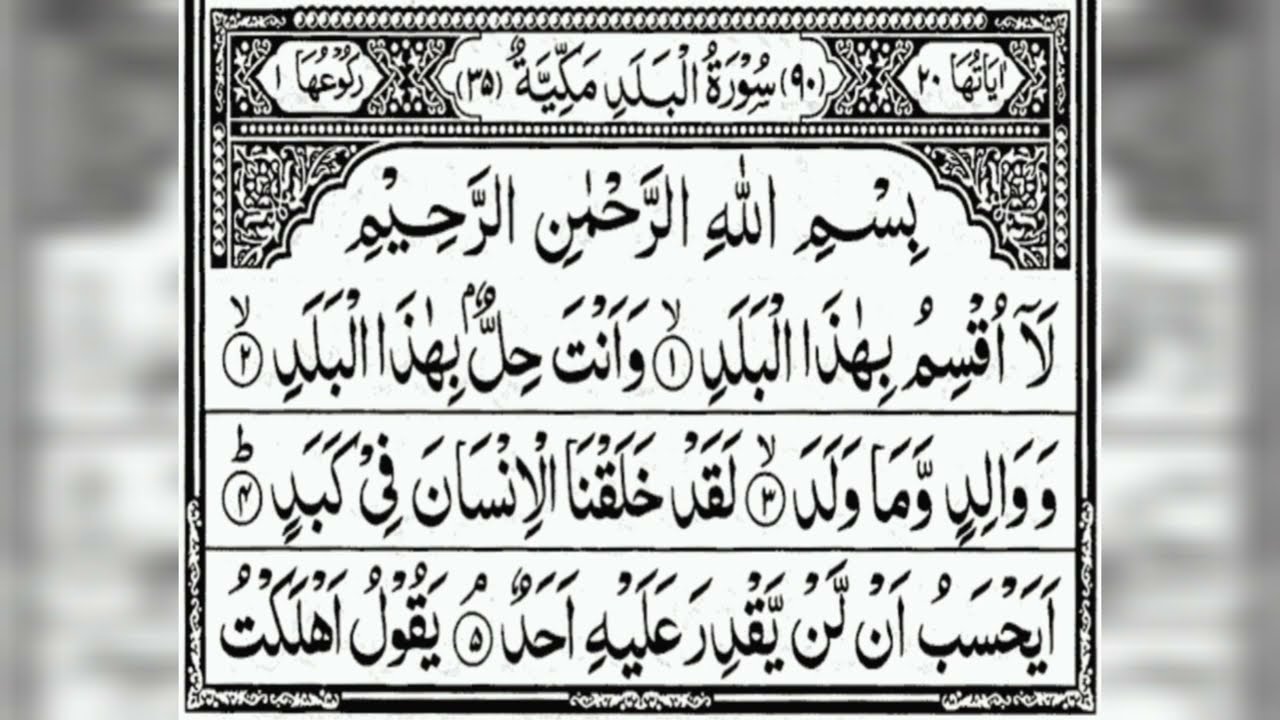 اٰیَاتُهَا ۲۰ (۹۰) سُوْرَةُ الْبَلَدِ مَكِّیَّةٌ (۳۵) رُكُوْعُهَا ۱
بِسْمِ اللّٰهِ الرَّحْمٰنِ الرَّحِیْمِ
لَاۤ اُقْسِمُ بِهٰذَا الْبَلَدِ ۙ﴿۱﴾ وَاَنْتَ حِلٌّۢ بِهٰذَا الْبَلَدِ ۙ﴿۲﴾
وَوَالِدٍ وَّمَا وَلَدَ ۙ﴿۳﴾ لَقَدْ خَلَقْنَا الْاِنْسَانَ فِیْ كَبَدٍ ؕ﴿۴﴾
اَیَحْسَبُ اَنْ لَّنْ یَّقْدِرَ عَلَیْهِ اَحَدٌ ۘ﴿۵﴾ یَقُوْلُ اَهْلَكْتُ